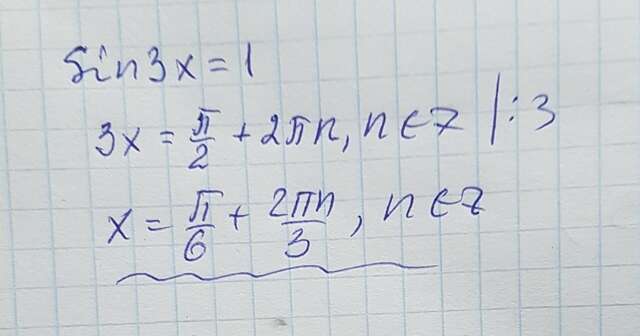 sin3x = 1
3x = π/2 + 2πn, n ∈ Z | : 3
x = π/6 + 2πn/3, n ∈ Z